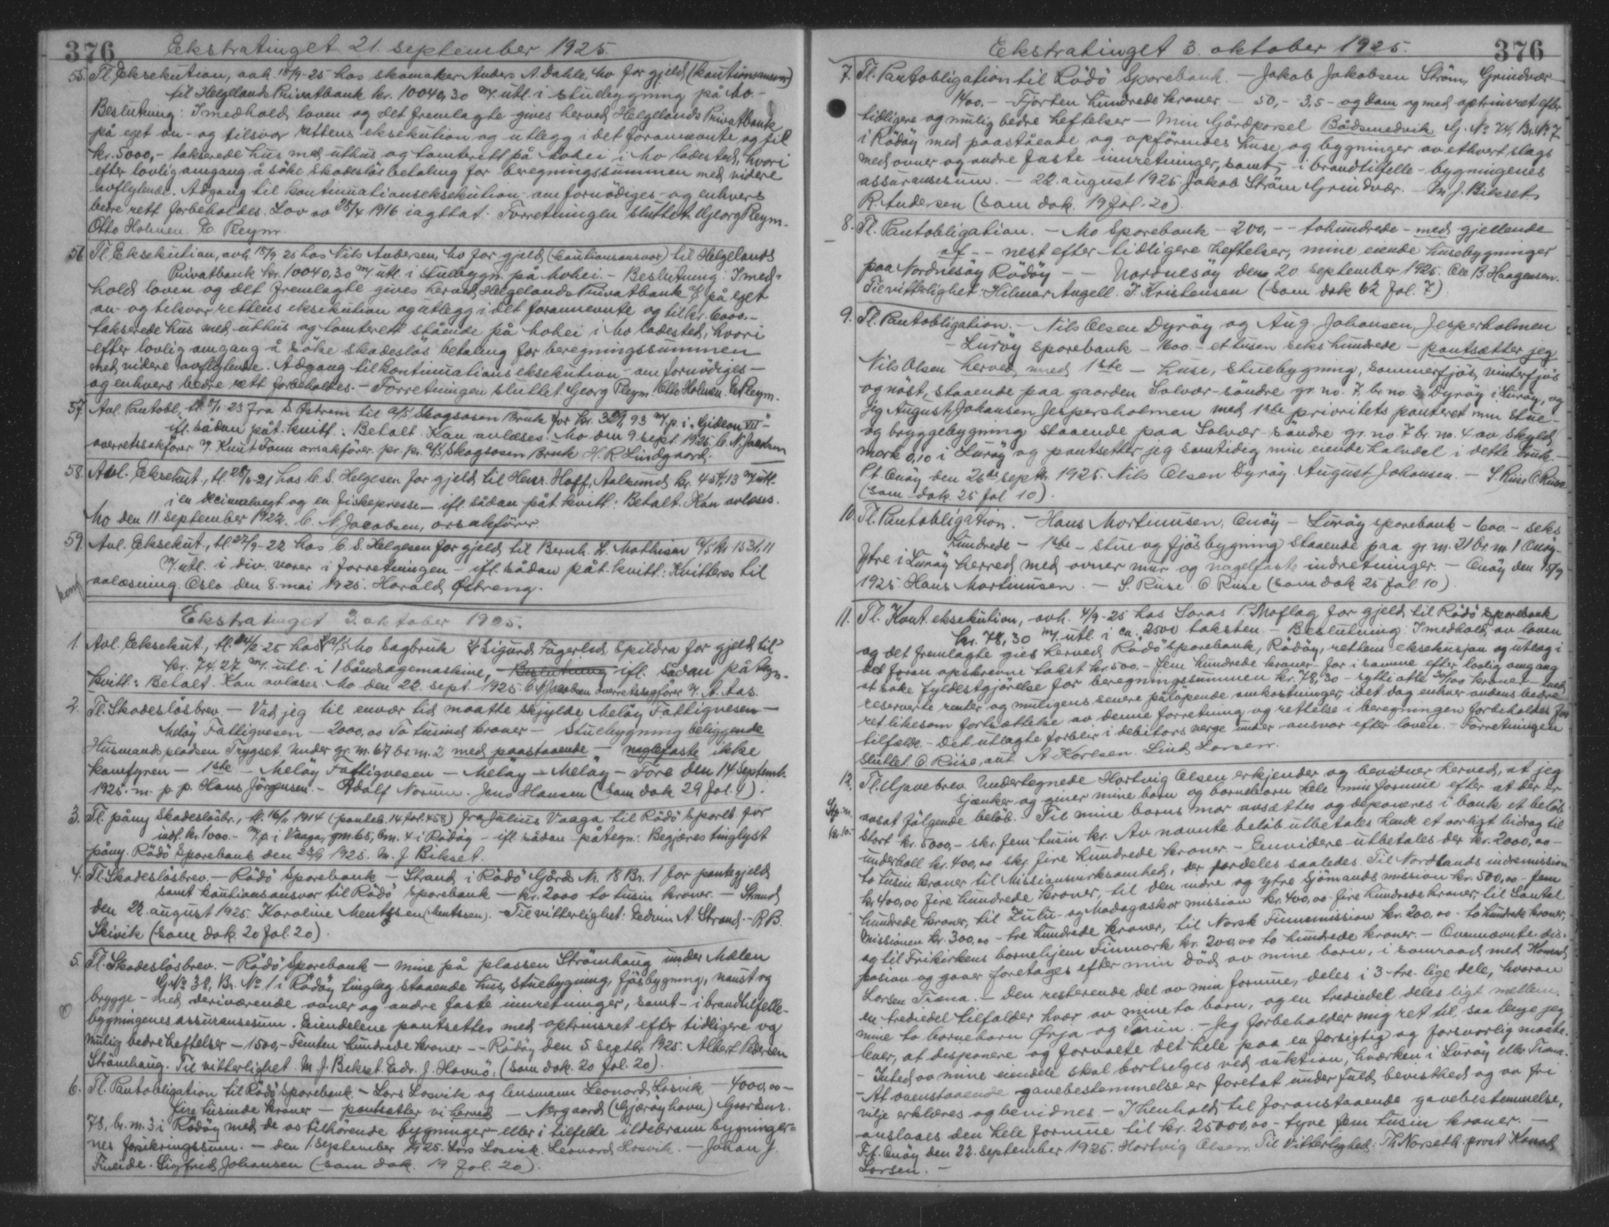 376 Ekstratinget 21. september 1925
55. Tl. Eksekution, avh. 15/9-25 hos skomaker Anders A. Dahle, Mo for gjeld (kautionsansvar)
til Helgelands Privatbank kr. 10040,30 m/ utl. i stuebygning på Mo -
Beslutning: I medhold loven og det fremlagte gives herved Helgelands Privatbank
på eget an- og tilsvar rettens eksekution og utlegg i det forannevnte, og til
kr. 5000,- takserede hus med uthus og tomterett på Mohei i Mo ladested, hvori
efter lovlig omgang å söke skadeslös betaling for beregningssummen med videre
avflytende. Adgang til kontinuationseksekution om fornödiges - og enhvers
bedre rett forbeholdes. Lov av 28/4 1916 iagttat. Forretningen sluttet. Georg Reym.
Otto Holmen. E. Reym
56. Tl. Eksekution, avh. 15/9 25 hos Nils Andersen, Mo for gjeld (kautionsansvar) til Helgelands
Privatbank kr. 10040,30 m/ utl. i stuebygn. på Mohei - Beslutning: I med-
hold loven og det fremlagte gives herved Helgelands Privatbank A/S på eget
an- og tilsvar rettens eksekution og utlegg i det forannevnte og til kr. 6000.-
takserede hus med uthus og tomterett stående på Mohei i Mo ladested, hvori
efter lovlig omgang å söke skadeslös betaling for beregningssummen
med videre avflytende. Adgang til kontinuationseksekution om fornödiges -
og enhvers bedre rett forbeholdes. - Forretningen sluttet. Georg Reym. Otto Holmen. E. Reym.
57. Avl. Pantobl., tl. 23 fra S. Östrem til A/S Skogsosen Bruk for kr. 93 m/ p. i "Gideon VII"
ifl. sådan påt. kvitt.: Betalt. Kan avlæses. Mo den 9. sept. 1925. C. N. Jacobsen
overretssakförer v/ Knut Tomn orsakförer. pr. pr. A/S Skogsosen Bruk H. R. Lindgaard.
58. Avl. Eksekut., tl. 21 hos C. S. Helgesen for gjeld til Henr. Hoff, Aalesund kr. 454,13 m/ utl.
i en decimalvegt og en fiskepresse - ifl. sådan påt. kvitt.: Betalt. Kan avlæses.
Mo den 11. september 1922. C. N. Jacobsen, orsakförer.
59. Avl. Eksekut., tl. 22/9-22 hos C. S. Helgesen for gjeld til Bernh. L. Mathisen A/S kr. 1531,11
m/ utl. i div. varer i forretningen - ifl. sådan påt. kvitt.: Kvitteres til
avlæsning. Oslo den 8. mai 1925. Harald Östreng.
Ekstratinget 3. oktober 1925.
1. Avl. Eksekut., tl. 25 hos A/S Mo Sagbruk v/ Sigurd Fagerlid Spildra for gjeld til
kr. 74,27 m/ utl. i 1 båndsagemaskine, ifl. sådan påtegn.
kvitt.: Betalt. Kan avlæses. Mo den 22. sept. 1925. C. N. Jacobsen overretssagförer v/ A. Aas.
2. Tl. Skadeslösbrev - Vad jeg til enver tid maatte skjylde Melöy Fattigvesen -
Melöy Fattigvesen - 2000,00 To tusind kroner - Stuebygning beliggende
Husmandspladsen Trygset under gr. nr. 67 br. nr. 2 med paastaaende - naglefaste ikke
komfyren - 1ste - Melöy Fattigvesen - Melöy - Melöy - Tore den 14 septemb.
1925. m. p. p. Hans Jörgensen. - Adolf Norum. Jens Hansen (som dok. 29 fol. 1).
3. Tl. påny Skadeslösbr., tl. 16/2 1914 (pantebok 14 fol. 458) fra Julius Vaaga til Rödö Sparebk. for
indl. kr. 1000.- m/ p. i Vaaga, gnr. 65, bnr. 4 i Rödöy - ifl. sådan påtegn.: Begjæres tinglyst
påny. Rödö Sparebank den 23/9 1925. M. J. Bikset.
4. Tl. Skadeslösbrev. - Rödö Sparebank - Strand i Rödö Gårds Nr. 18 Br. 1 for pantegjeld
samt kautionsansvar til Rödö Sparebank - kr. 2000 to tusin kroner. - Strand
den 22. august 1925. Karoline Mentzsen (Mentsen). - Til vitterlighet: Edvin A. Strand. - R. B.
Skivik (som dok. 20 fol. 20).
5. Tl. Skadeslösbrev. - Rödö Sparebank - mine på plassen Strömhaug under Mælen
G. No 32, Br. No 1 i Rödöy tinglag staaende hus, stuebygning, fjösbygning, naust og
brygge - med deriværende ovner og andre faste innretninger, samt - i brandtilfelle-
bygningenes assuransesum. Eiendelene pantsettes med optrinsret efter tidligere og
mulig bedre heftelser - 1500,- Femten hundrede kroner - - Rödöy den 5. septbr. 1925. Albert Pedersen
Strömhaug. Til vitterlighet: M. J. Bikset. Edv. J. Havnö. (som dok. 20 fol. 20).
6. Tl. Pantobligation til Rödö Sparebank - Lars Losvik og lensmann Leonard Losvik - 4000,00 -
fire tusinde kroner - pantsetter vi herved - Nergaard (Gjæröyhavn) Gaardsnr.
78, br. nr. 3 i Rödöy med de os tilhörende bygninger - eller i tilfelde ildebrann bygninge-
nes forsikringssum. - den 1 September 1925. Lars Losvik. Leonard Losvik. - Johan J.
Fineide. Sigfred Johansen (som dok. 19 fol. 20).
Ekstratinget 3. oktober 1925. 376
7. Tl. Pantobligation til Rödö Sparebank. - Jakob Jakobsen Ström, Grindvær -
1400.- Fjorten hundrede kroner - 50,- 3,5 - og dom og med optrinsret efter
tidligere og mulig bedre heftelser - Min Gårdparsel Bådsmedvik G. No 74, Br. No 7
i Rödöy med paastående og opförendes huse og bygninger av ethvert slags
med ovner og andre faste innretninger, samt - i brandtilfelle - bygningenes
assuransesum. - 22. august 1925. Jakob Ström Grindvær. - M. J. Bikset.
R. Andersen (som dok. 19 fol. 20)
8. Tl. Pantobligation. - Mo Sparebank - 200,- - tohundrede - med gjellende
- nest efter tidligere heftelser, mine eiende husebygninger
paa Nordnesöy Rödöy - - Nordnesöy den 20 September 1925. Ole B. Haagensen.
Til vitterlighet: Hilmar Angell. J. Kristensen (som dok. 62 fol. 7)
9. Tl. Pantobligation. - Nils Olsen Dyröy og Aug. Johansen, Jesperholmen
- Luröy sparebank - 1600.- et tusen seks hundrede - pantsætter jeg
Nils Olsen herved med 1ste - huse, stuebygning, sommerfjös, vinterfjös
og nöst, staaende paa gaarden Solvær söndre gr. no. 7, br. no 3 Dyröy i Luröy, og
jeg August Johansen, Jesperholmen med 1ste prioritets panteret min stue-
og bryggebygning staaende paa Solvær söndre gr. no 7 br. no. 4 av skyld
mark 0,10 i Luröy og pantsetter jeg samtidig min eiende halvdel i dette bruk. -
Pt. Onöy den 26de septbr. 1925. Nils Olsen Dyröy August Johansen. - S. Ruse O. Ruse
(som dok. 25 fol 10).
10. Tl. Pantobligation. - Hans Mortinusen, Onöy - Luröy sparebank - 600.- seks
hundrede - 1ste - stue og fjösbygning staaende paa gr. nr. 21 br. nr. 1 Onöy
ytre i Luröy herred med ovner mur og nagelfaste indretninger. - Onöy den 15/9
1925 Hans Mortinusen. - S. Ruse. O Ruse (som dok 25 fol 10)
11. Tl. Kont. eksekution, avh. 4/9-25 hos Loras P. Moflag for gjeld til Rödö Sparebank
kr. 78,30 m/ utl. i ca. 2500 taksten - Beslutning: I medhold av loven
og det fremlagte gies herved Rödö Sparebank, Rödöy, rettens eksekusjon og utlæg i
det foran opskrevne takst kr. 500.- fem hundrede kroner for i samme efter lovlig omgang
at söke fyldestgjörelse for beregningssummen kr. 78,30 - sytti otte 30/100 kroner - med
reserverte renter og muligens senere påløpende omkostninger, idet dog enhver andens bedre
ret likesom fortsættelse av denne forretning og rettelse i beregningen forbeholdes for
tilfælde. - Det utlagte forblir i debitors verge under ansvar efter loven. - Forretningen
sluttet O. Ruse, aut. A. Karlsen. Lind. Larsen.
12. Tl. Gjavebrev. Undertegnede Hartvig Olsen erkjender og bevidner herved, at jeg
skjænker og giver mine barn og barnebarn hele min formue efter at der er
avsat fölgende belöb. - Til mine barns mor avsættes og deponeres i bank et belöb
stort kr. 5000,- skr. fem tusin kr. Av nævnte belöb utbetales hende et aarligt bidrag til
underhold kr. 400,00 skr. fire hundrede kroner - Eenvidere utbetales der kr. 2000,00 -
to tusin kroner til Missionsvirksomhed, der fordeles saaledes. Til Nordlands indremission
kr. 400,00 fire hundrede kroner, til den indre og ytre Sjömandsmission kr. 500,00 - fem
hundrede kroner, til Zulu- og Madagaskar mission kr. 400,00 fire hundrede kroner, til Santal
Missionen kr. 300,00 - tre hundrede kroner, til Norsk Finnemission kr. 200,00 - to hundrede kroner,
og til Frikirkens barnehjem Finmark kr. 200,00 to hundrede kroner. - Ovennævnte dis-
posison og gaver foretages efter min död av mine barn, i samraad med Konrad
Larsen Træna. - Den resterende del av min formue, deles i 3 - tre - lige dele, hvorav
en trediedel tilfalder hver av mine to barn, og en trediedel deles ligt mellem
mine to barnebarn Örja og Torun. - Jeg forbeholder mig ret til, saa lenge jeg
lever, at disponere og forvalte det hele paa en forsigtig og forsvarlig maate.
- Intet av mine eiendele skal bortselges ved auktion, hværken i Luröy eller Træna.
- At ovenstaaende gavebestemmelse er foretat under fuld bevisthed og av fri
vilje erklæres og bevidnes - I henhold til foranstaaende gavebestemmelse,
anslaaes den hele formue til kr. 25000,00 - tyve fem tusin kroner. -
P.t. Onöy den 22. september 1925. Hartvig Olsen. Til Vitterlighed: Th. Norseth, prost Konrad
Larsen. -